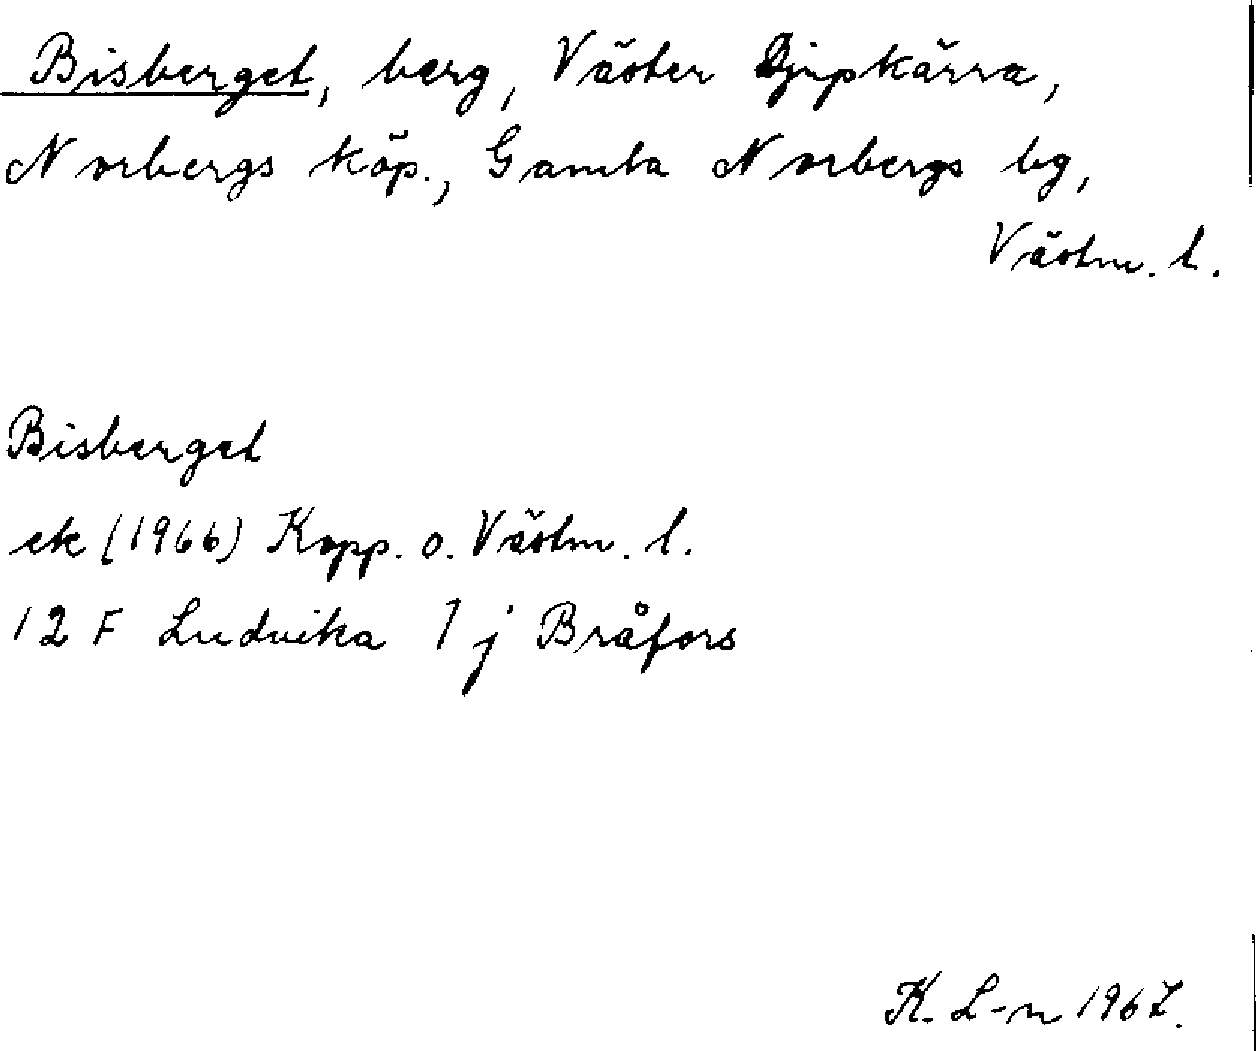 Bisberget, berg, Väster Djupkärra,
Norbergs köp., Gamla Norbergs bg,
Västm. l.
Bisberget
ek (1966) Kopp. o. Västm. l.
12 F Ludvika 1 j Bråfors
K. L-n 1967.